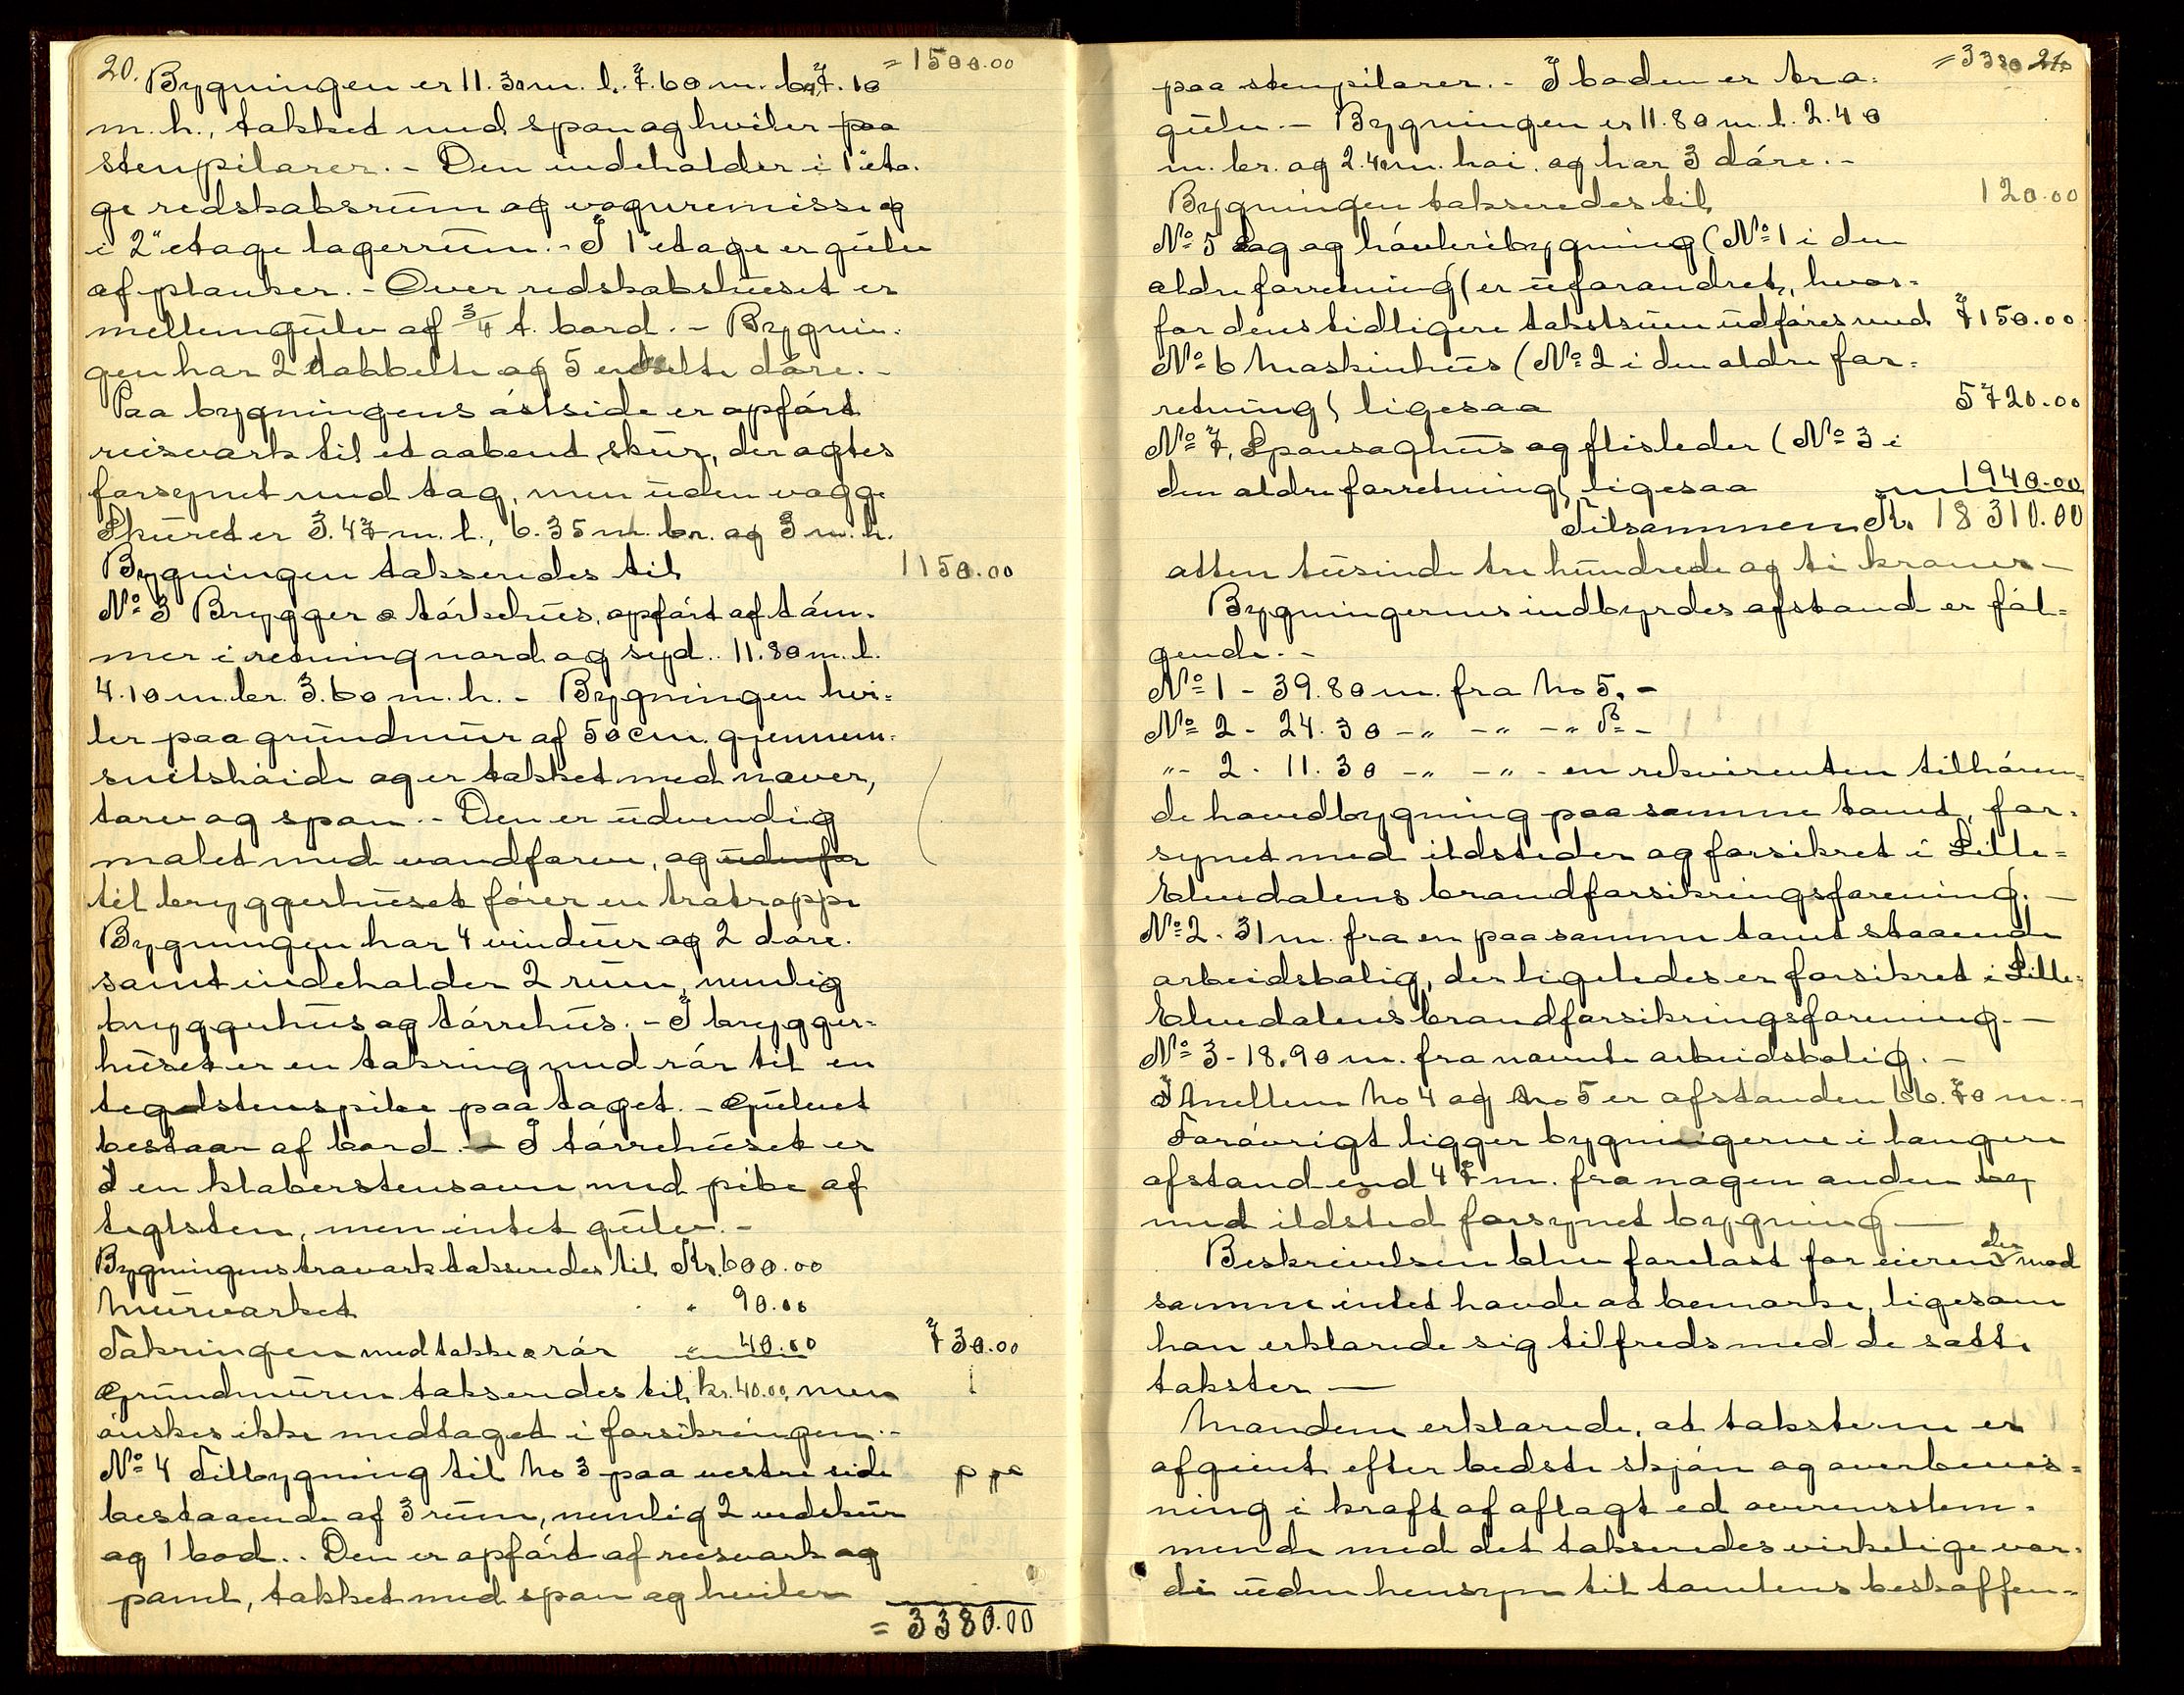 20. = 1500.00
Bygningen er 11.30 m. l. 7.60 m. br, 7.10
m. h., tækket med spon og hviler paa
stenpilarer. - Den indeholder i 1" eta-
ge redskabsrum og vognremisse og
i 2" etage lagerrum. - I 1" etage er gulv
af planker. - Over redskabshuset er
mellemgulv af 3/4 t. bord. - Bygnin-
gen har 2 dobbelte og 5 enkelte døre. -
Paa bygningens østside er opført
reisværk til et aabent skur, der agtes
forsynet med tag, men uden vægge
Skuret er 3.47 m. l., 6.35 m. br. og 3 m. h.
Bygningen takseredes til 1150.00
No 3 Brygger & tørkehus, opført af tøm-
mer i retning nord og syd.. 11.80 m. l.
4.10 m. br. 3.60 m. h. - Bygningen hvi-
ler paa grundmur af 50 cm. gjennem-
snitshøide og er tækket med næver,
torv og spon. - Den er udvendig
malet med vandfarve, og udenfor
til bryggerhuset fører en trætrappe
Bygningen har 4 vinduer og 2 døre.
samt indeholder 2 rum, nemlig
bryggerhus og tørrehus. - I brygger-
huset er en takring med rør til en
teglstenspibe paa taget. - Gulvet
bestaar af bord. - I tørrehuset er
en klæberstensovn med pibe af
teglsten, men intet gulv. -
Bygningens træværk takseredes til Kr. 600.00
Murværket " 90.00
Takringen med takke & rør " 40.00 730.00
Grundmuren takseredes til kr. 40.00, men
ønskes ikke medtaget i forsikringen. -
No 4 Tilbygning til No 3 paa vestre side
bestaaende af 3 rum, nemlig 2 vedskur
og 1 bod.. Den er opført af reisværk og
panel, tækket med spon og hviler
= 3380.00
= 3380 21.
paa stenpilarer. - I boden er træ-
gulv. - Bygningen er 11.80 m. l. 2.40
m. br. og 2.40 m. høi. og har 3 døre. -
Bygningen takseredes til 120.00
No 5 Sag og høvleribygning (No 1 i den
ældre forretning) er uforandret, hvor-
for dens tidligere takstsum udføres med 7150.00
No 6 Maskinhus (No 2 i den ældre for-
retning) ligesaa 5720.00
No 7, Sponsaghus og flisleder (No 3 i
den ældre forretning) ligesaa 1940.00
Tilsammen Kr. 18310.00
atten tusinde tre hundrede og ti kroner -
Bygningernes indbyrdes afstand er føl-
gende. -
No 1 - 39.80 m. fra No 5. -
No 2 - 24.30 -" -" -" 5 -
"- 2 - 11.30 -" -" - en rekvirenten tilhøren-
de hovedbygning paa samme tomt, for-
synet med ildsteder og forsikret i Lille-
Elvedalens brandforsikringsforening. -
No 2 - 31 m. fra en paa samme tomt staaende
arbeidsbolig, der ligeledes er forsikret i Lille-
Elvedalens brandforsikringsforening. -
No 3 - 18.90 m. fra nævnte arbeidsbolig. -
Mellem No 4 og No 5 er afstanden 66.70 m. -
Forøvrigt ligger bygningerne i længere
afstand end 47 m. fra nogen anden
med ildsted forsynet bygning -
Beskrivelsen blev forelæst for eieren der mod
samme intet havde at bemærke, ligesom
han erklærede sig tilfreds med de satte
takster -
Mændene erklærede, at taksterne er
afgivet efter bedste skjøn og overbevis-
ning i kraft af aflagt ed overensstem-
mende med det takseredes virkelige vær-
di uden hensyn til tomtens beskaffen-